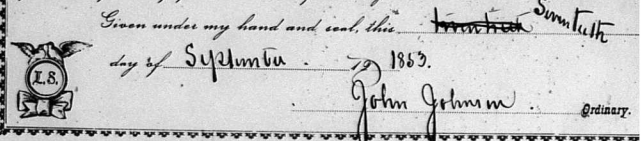 Given under my hand and seal, this
day of September. 19
L.S.
John Johnson. Ordinary.